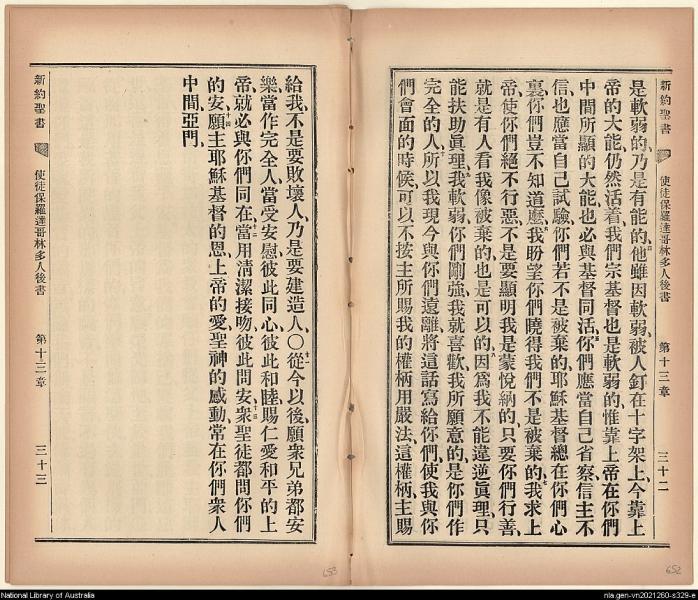 新約聖書 使徒保羅達哥林多人後書 第十三章 三十二
是軟弱的、乃是有能的、他雖因軟弱、被人釘在十字架上、今靠上
帝的大能、仍然活着、我們宗基督也是軟弱的、惟靠上帝在你們
中間所顯的大能、也必與基督同活、你們應當自己省察、信主不
信、也應當自己試驗、你們若不是被棄的、耶穌基督總在你們心
裏、你們豈不知道麽、我盼望你們曉得我們不是被棄的、我求上
帝、使你們絕不行惡、不是要顯明我是蒙悅納的、只要你們行善、
就是有人看我像被棄的、也是可以的、因爲我不能違逆眞理、只
能扶助眞理、我軟弱、你們剛強、我就喜歡、我所願意的、是你們作
完全的人、所以我現今與你們遠離、將這話寫給你們、使我與你
們會面的時候、可以不按主所賜我的權柄、用嚴法、這權柄、主賜
新約聖書 使徒保羅達哥林多人後書 第十三章 三十三
給我、不是要敗壞人、乃是要建造人、〇十一從今以後、願衆兄弟都安
樂、當作完全人、當受安慰、彼此同心、彼此和睦、賜仁愛和平的上
帝、就必與你們同在、十二當用清潔接吻、彼此問安、十三衆聖徒都問你們
的安、十四願主耶穌基督的恩、上帝的愛、聖神的感動、常在你們衆人
中間、亞門、
653
652
National Library of Australia
nla.gen-vn2021260-s329-e